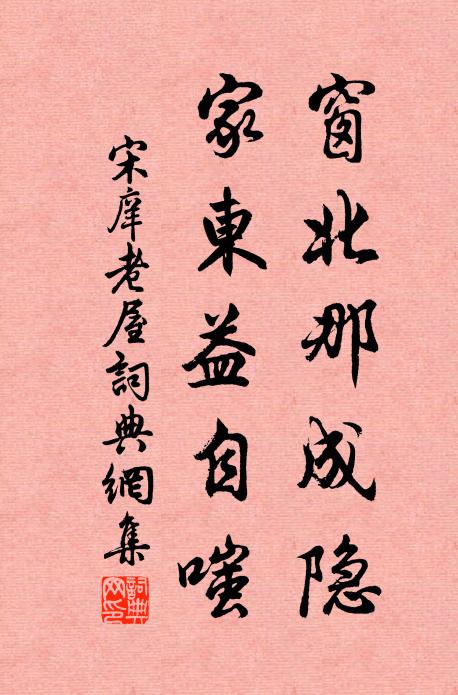 窗北那成隐
家東益自嗤
宋庠老屋詞典網集
詞典
网印